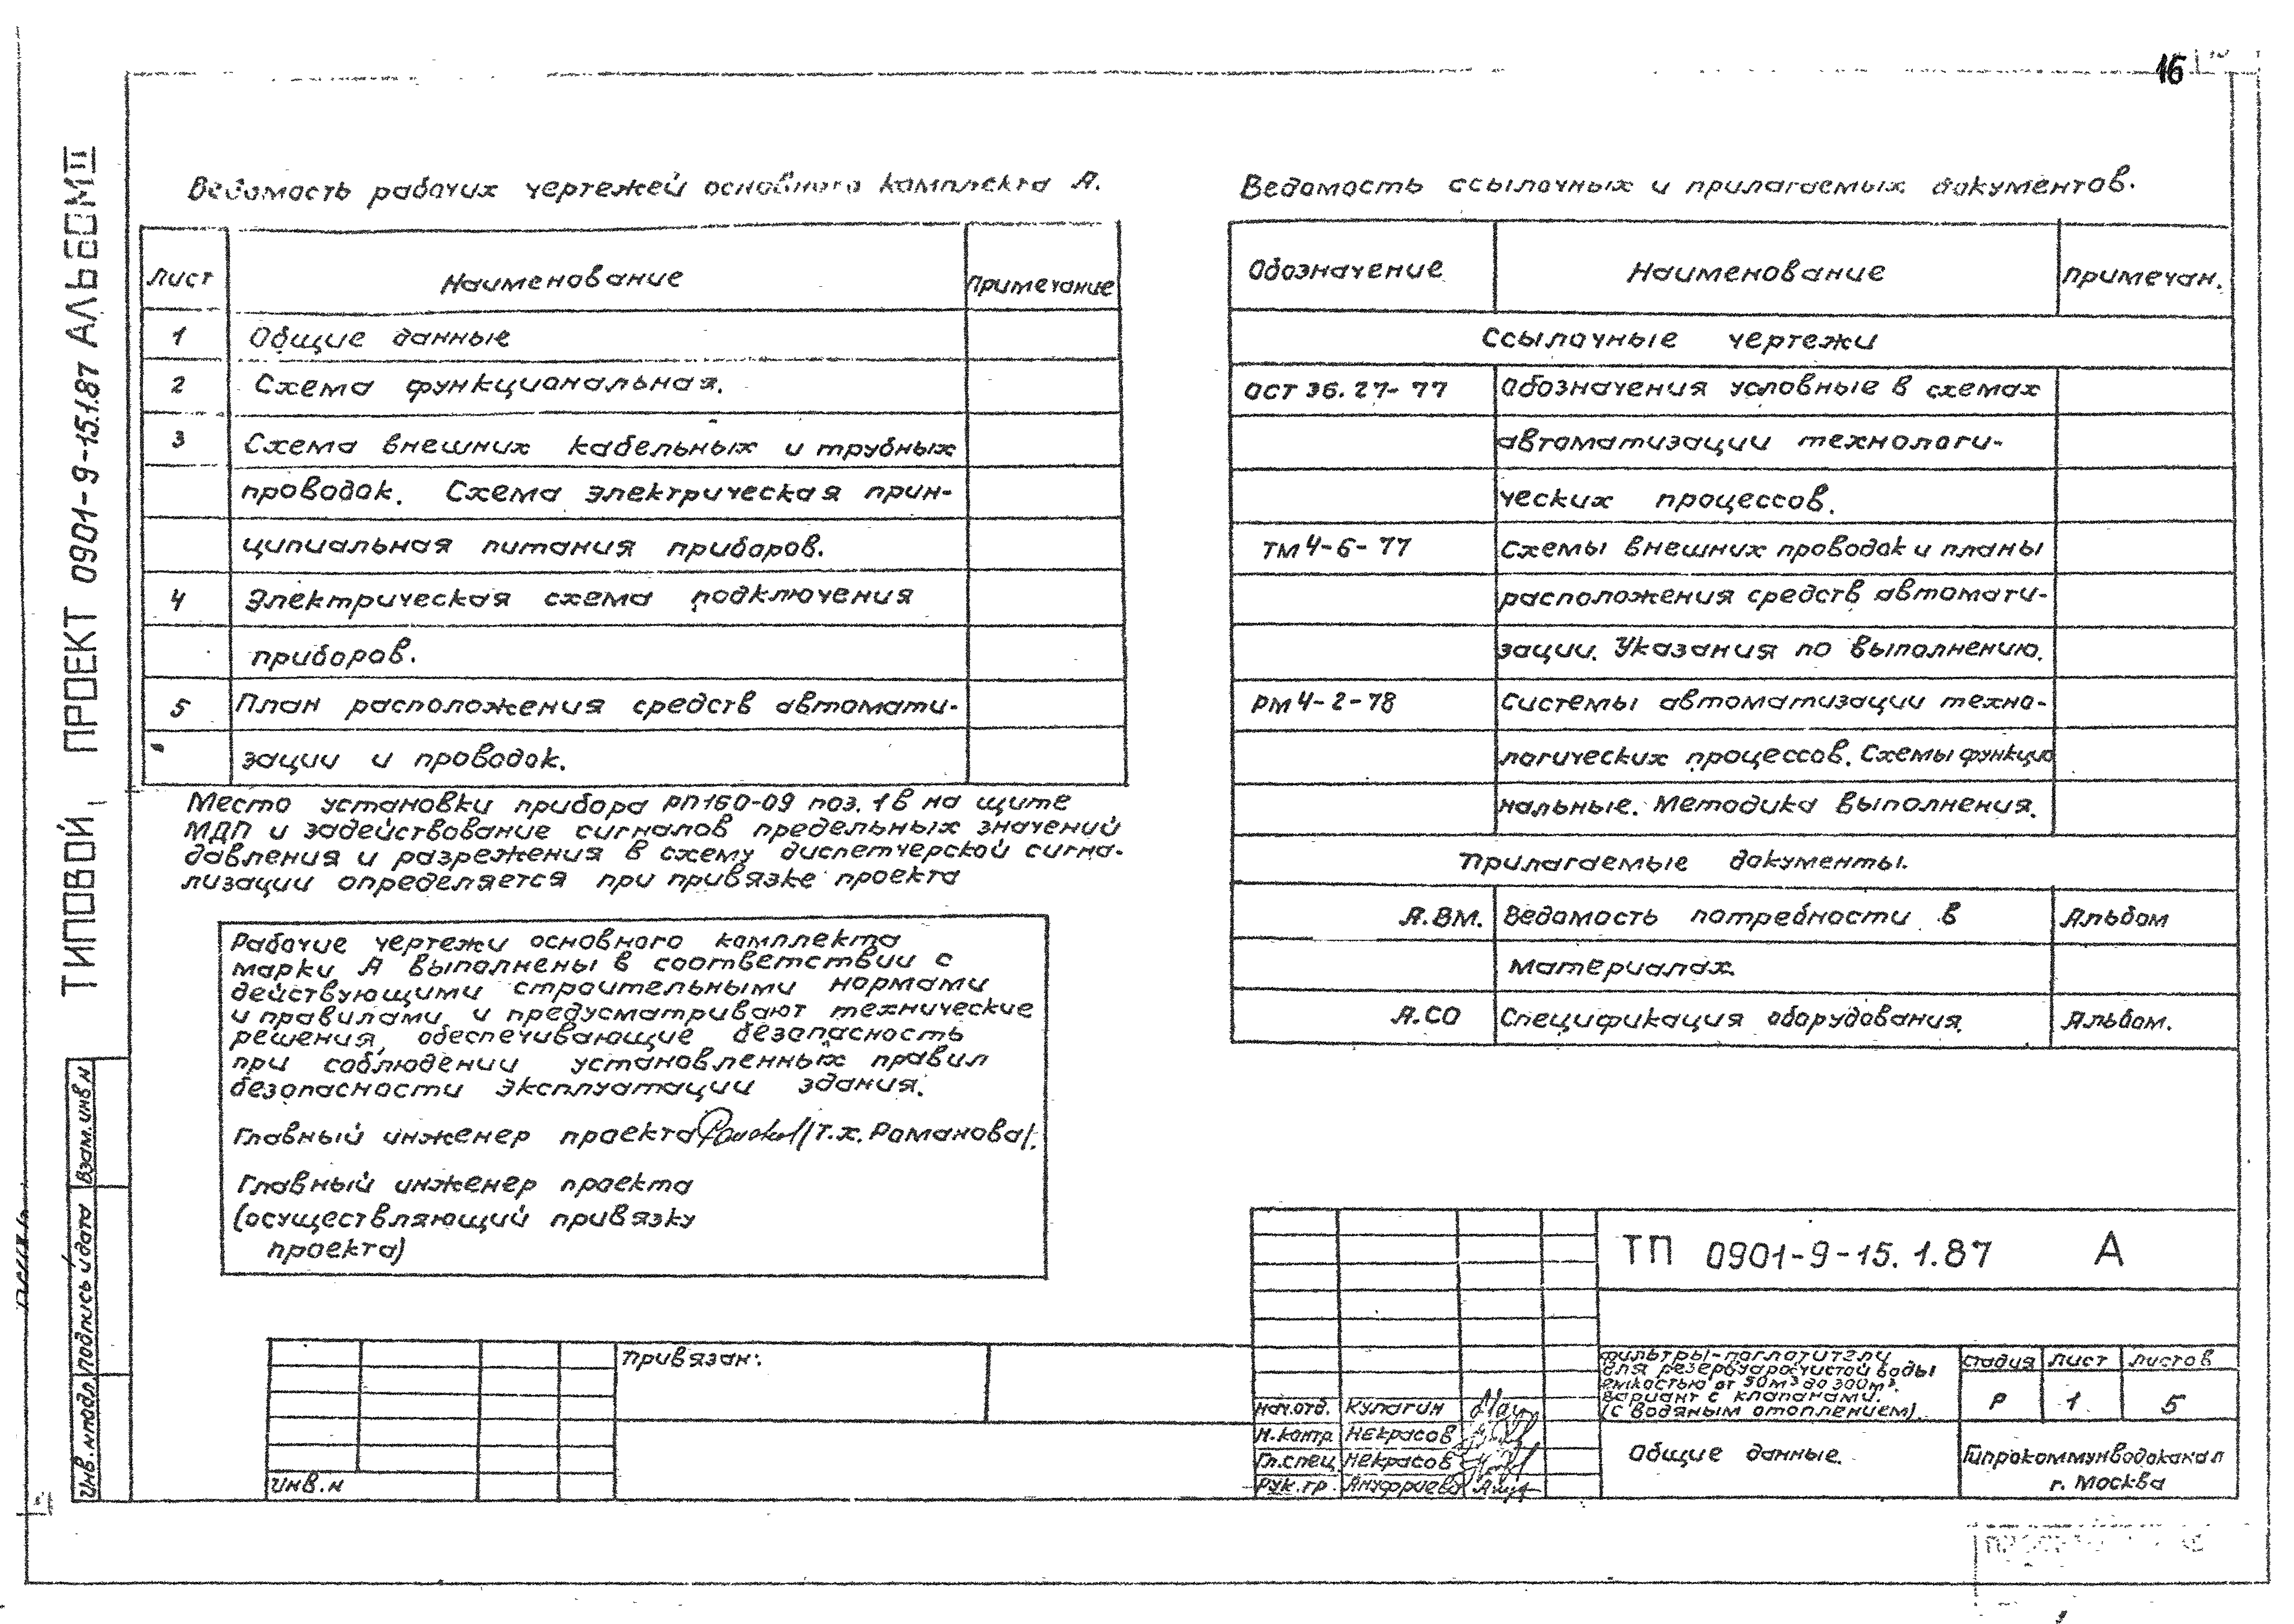 16
ТИПОВОЙ ПРОЕКТ 0901-9-15.1.87 АЛЬБОМ II
Ведомость рабочих чертежей основного комплекта А.
Лист Наименование Примечание
1 Общие данные
2 Схема функциональная.
3 Схема внешних кабельных и трубных
проводок. Схема электрическая прин-
ципиальная питания приборов.
4 Электрическая схема подключения
приборов.
5 План расположения средств автомати-
зации и проводок.
Место установки прибора РП160-09 поз. 1в на щите
МДП и задействование сигналов предельных значений
давления и разрежения в схему диспетчерской сигна-
лизации определяется при привязке проекта
Рабочие чертежи основного комплекта
марки А выполнены в соответствии с
действующими строительными нормами
и правилами и предусматривают технические
решения, обеспечивающие безопасность
при соблюдении установленных правил
безопасности эксплуатации здания.
Главный инженер проекта /Т.Х. Романова/.
Главный инженер проекта
(осуществляющий привязку
проекта)
Ведомость ссылочных и прилагаемых документов.
Обозначение Наименование Примечан.
Ссылочные чертежи
ОСТ 36.27-77 Обозначения условные в схемах
автоматизации технологи-
ческих процессов.
ТМ4-6-77 Схемы внешних проводок и планы
расположения средств автомати-
зации. Указания по выполнению.
РМ4-2-78 Системы автоматизации техно-
логических процессов. Схемы функцио
нальные. Методика выполнения.
Прилагаемые документы.
А.ВМ. Ведомость потребности в Альбом
материалах.
А.СО Спецификация оборудования. Альбом.
Взам.инв.н
Подпись и дата
Инв.нподл
Привязан:
Инв.н
ТП 0901-9-15.1.87 А
Фильтры-поглотители
для резервуаров чистой воды
емкостью от 50м³ до 300м³.
Вариант с клапанами.
(с водяным отоплением).
Стадия Лист Листов
Р 1 5
Нач.отд. Кулагин
Н.контр Некрасов
Гл.спец Некрасов
Рук.гр. Ануфриева
Общие данные.
Гипрокоммунводоканал
г. Москва